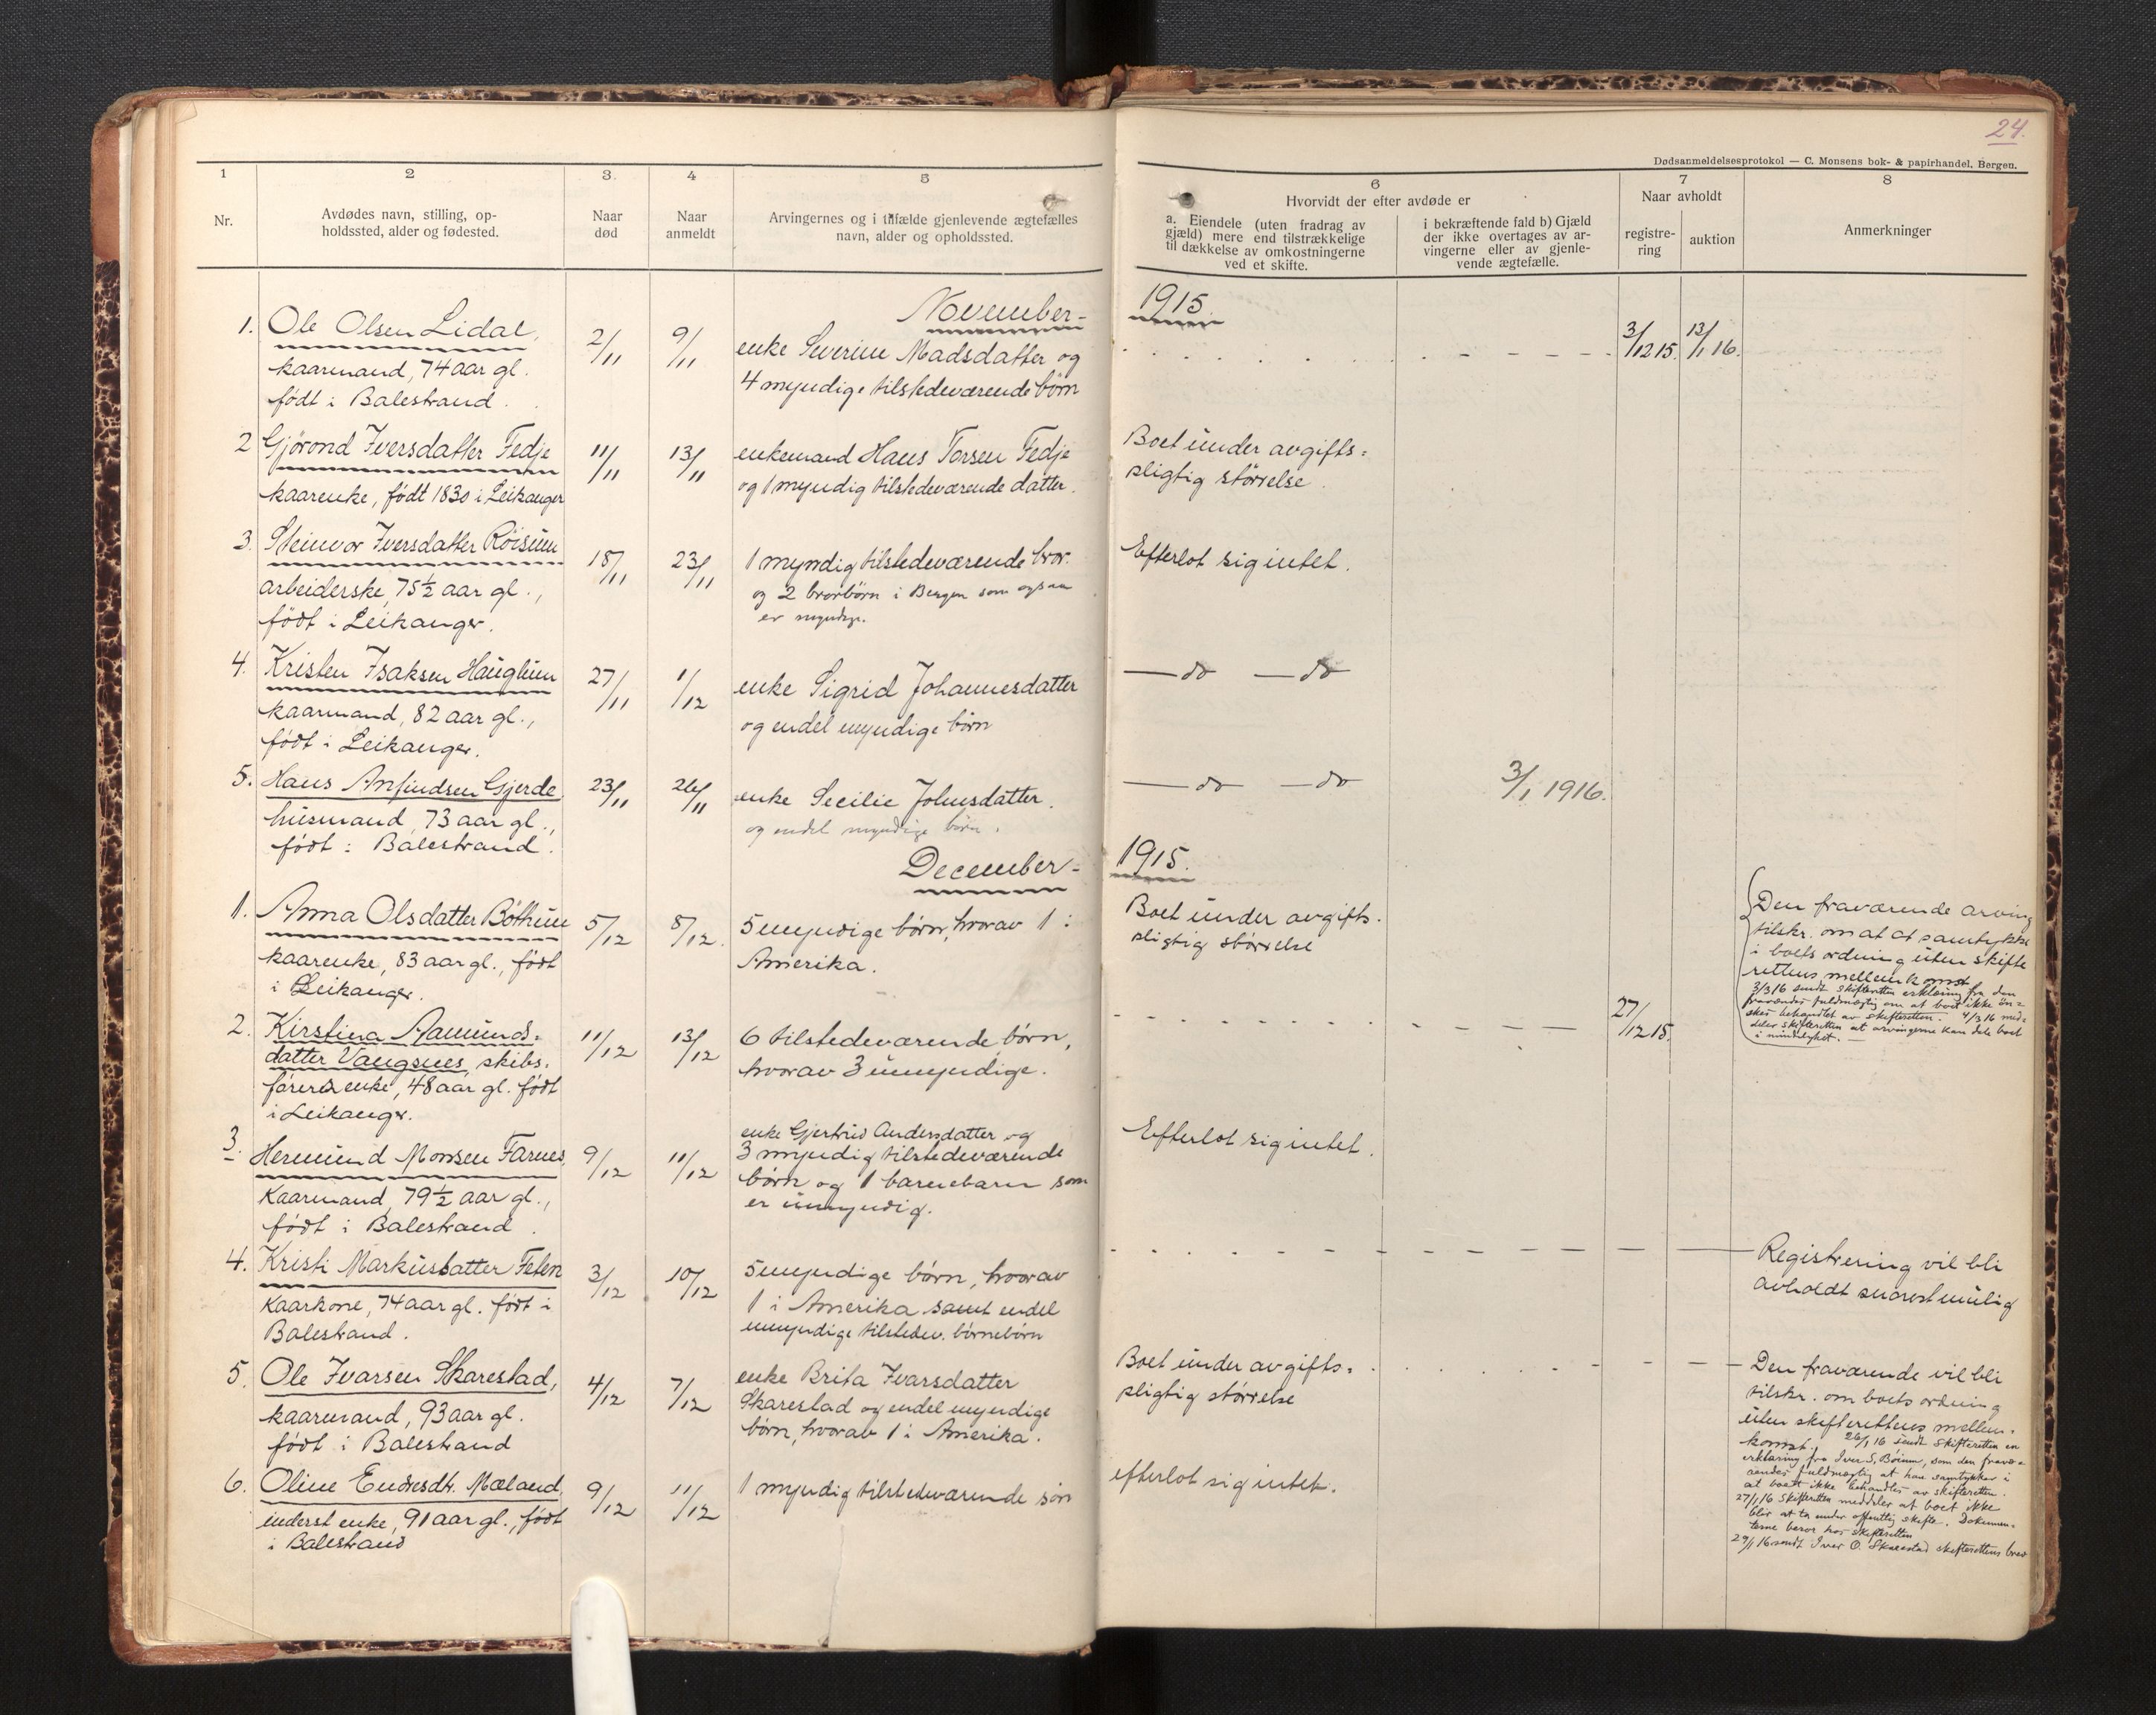 24.
Dødsanmeldelsesprotokol — C. Monsens bok- & papirhandel, Bergen.
1
Nr.
2
Avdødes navn, stilling, op-
holdssted, alder og fødested.
3
Naar
død
4
Naar
anmeldt
5
Arvingernes og i tilfælde gjenlevende ægtefælles
navn, alder og opholdssted.
6
Hvorvidt der efter avdøde er
a. Eiendele (uten fradrag av
gjæld) mere end tilstrækkelige
til dækkelse av omkostningerne
ved et skifte.
i bekræftende fald b) Gjæld
der ikke overtages av ar-
vingerne eller av gjenle-
vende ægtefælle.
7
Naar avholdt
registre-
ring
auktion
8
Anmerkninger
November - 1915.
1. Ole Olsen Lidal,
kaarmand, 74 aar gl.
født i Balestrand.
2/11
9/11
enke Severine Madsdatter og
4 myndige tilstedeværende børn
3/12 15.
13/1 16.
2 Gjørond Iversdatter Fedje
kaarenke, født 1830 i Leikanger
11/11
13/11
enkemand Hans Torsen Fedje
og 1 myndig tilstedeværende datter.
Boet under avgifts=
pligtig størrelse.
3. Steinvor Iversdatter Röisum
arbeiderske, 75½ aar gl.,
født i Leikanger.
18/11
23/11
1 myndig tilstedeværende bror.
og 2 brorbörn i Bergen som ogsaa
er myndige.
Efterlot sig intet.
4. Kristen Isaksen Hauglum
kaarmand, 82 aar gl.,
født i Leikanger.
27/11
1/12
enke Sigrid Johannesdatter
og endel myndige børn
— do — do
5. Hans Anfindsen Gjerde
husmand, 73 aar gl.,
født i Balestrand.
23/11
26/11
enke Secilie Johnsdatter.
og endel myndige børn.
— do — do
3/1 1916.
December - 1915.
1. Anna Olsdatter Böthun
kaarenke, 83 aar gl., født
i Leikanger.
5/12
8/12.
5 myndige børn, hvorav 1 i
Amerika.
Boet under avgifts-
pligtig størrelse
Den fraværende arving
tilskr. om at at samtykke
i boets ordning uten skifte
rettens mellemkomst
3/3 16 sendt skifteretten erklæring fra den
fraværendes fuldmægtig om at boet ikke øn=
skes behandlet av skifteretten. 4/3 16 med=
deler skifteretten at arvingerne kan dele boet
i mindelighet. —
2. Kirstina Aamunds-
datter Vangsnes, skibs-
førers enke, 48 aar gl. født
i Leikanger.
11/12
13/12
6 tilstedeværende børn,
hvorav 3 umyndige.
27/12 15.
3. Hermund Monsen Farnes,
Kaarmand, 79½ aar gl.,
født i Balestrand.
9/12
11/12
enke Gjertrud Andersdatter og
3 myndig tilstedeværende
børn og 1 barnebarn som
er umyndig.
Efterlot sig intet.
4. Kristi Markusdatter Feten
Kaarkone, 74 aar gl. født i
Balestrand.
3/12
10/12
5 myndige børn, hvorav
1 i Amerika samt endel
umyndige tilstedev. børnebørn
Registrering vil bli
avholdt snarest mulig
5. Ole Ivarsen Skarestad,
kaarmand, 93 aar gl.
født i Balestrand
4/12
7/12
enke Brita Ivarsdatter
Skarestad og endel myndige
børn, hvorav 1 i Amerika.
Boet under avgifts=
pligtig størrelse
Den fraværende vil bli
tilskr. om boets ordning
uten skifterettens mellem-
komst. 26/1 16 sendt skifteretten en
erklæring fra Iver S. Böium, som den fravæ=
rendes fuldmægtig at han samtykker i
at boet ikke behandles av skifteretten.
27/1 16 skifteretten meddeler at boet ikke
blir at ta under offentlig skifte. Dokumen-
terne beror hos skifteretten
29/1 16 sendt Iver O. Skarestad skifterettens brev
6. Oline Endresdtr. Mæland,
inderst enke, 91 aar gl., født
i Balestrand
9/12
11/12
1 myndig tilstedeværende søn
efterlot sig intet.